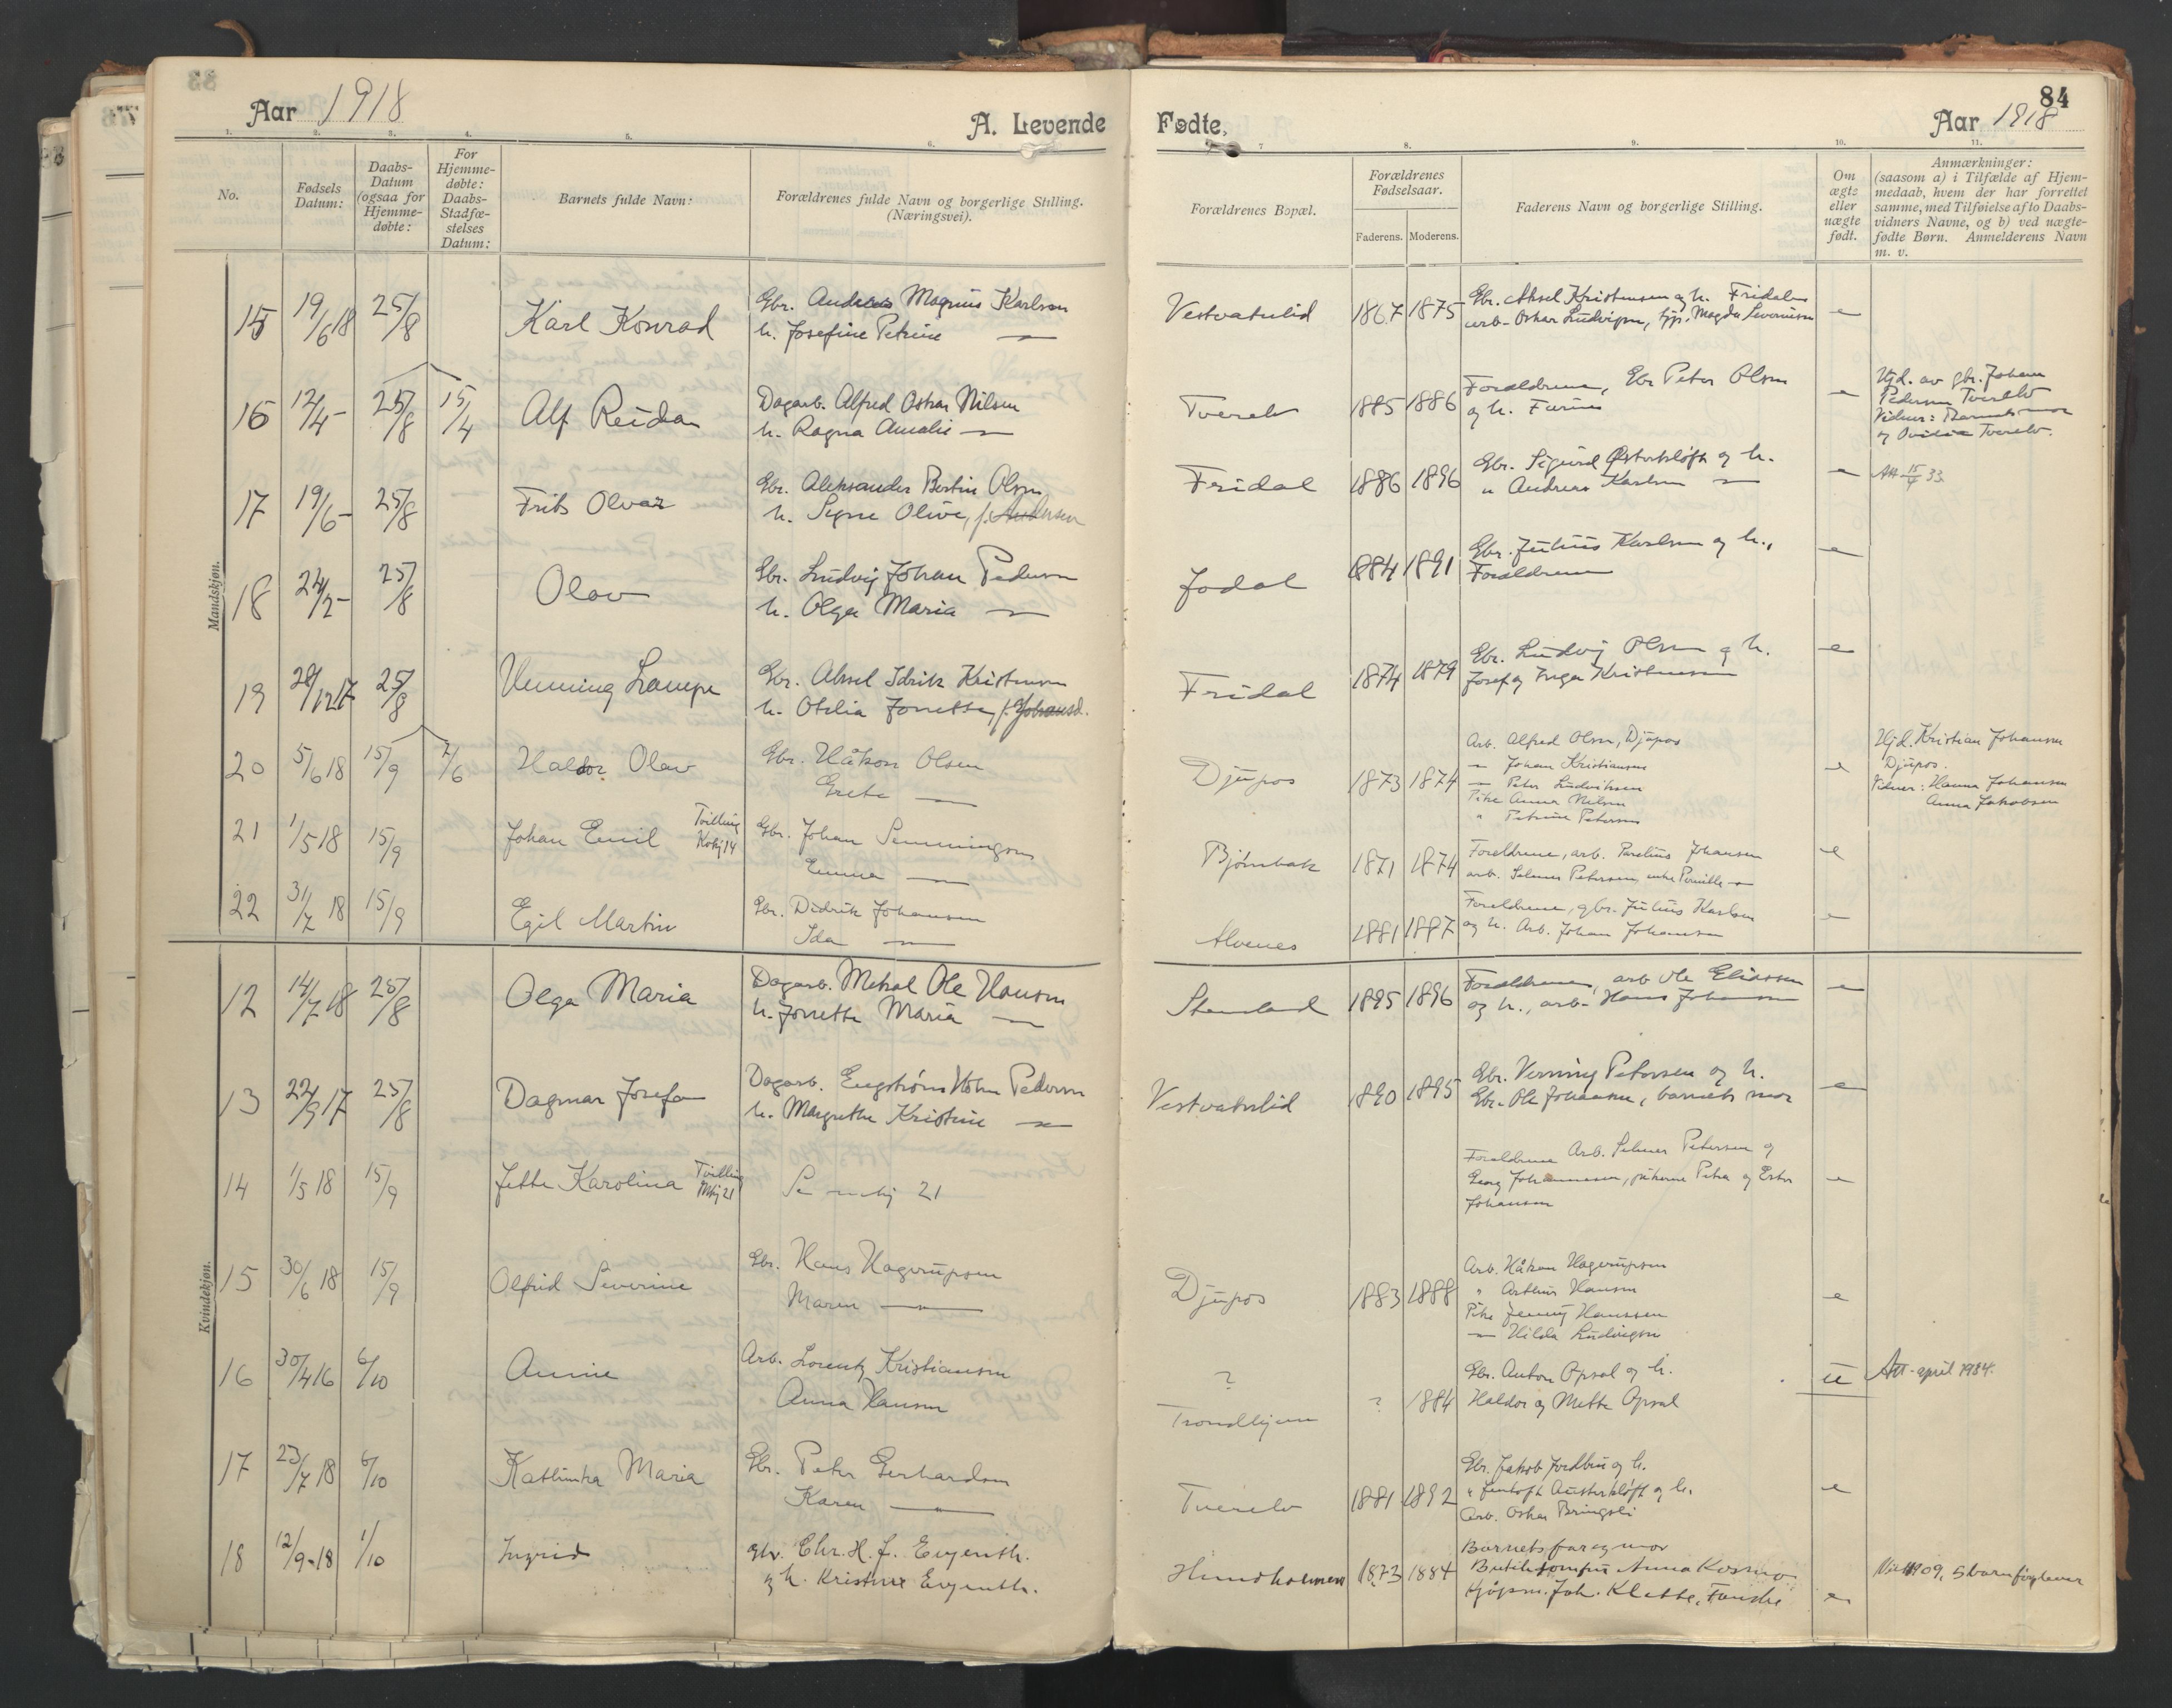 84
Aar 1918
A. Levende
Fødte,
Aar 1918
1. 2. 3. 4. 5. 6. 7 8. 9. 10. 11.
No.
Fødsels
Datum:
Daabs-
Datum
(ogsaa for
Hjemme-
døbte:
For
Hjemme-
døbte:
Daabs-
Stadfæ-
stelses
Datum:
Barnets fulde Navn:
Forældrenes fulde Navn og borgerlige Stilling.
(Næringsvei).
Forældrenes Bopæl.
Forældrenes
Fødselsaar.
Faderens. Moderens.
Faderens Navn og borgerlige Stilling.
Om
ægte
eller
uægte
født.
Anmærkninger:
(saasom a) i Tilfælde af Hjem-
medaab, hvem der har forrettet
samme, med Tilføielse af to Daabs-
vidners Navne, og b) ved uægte-
fødte Børn. Anmelderens Navn
m. v.
Mandskjøn.
15 19/6 18 25/8 Karl Konrad
Gbr. Andreas Magnus Karlsen
h. Josefine Petrine —
Vestvatnlid 1867 1875
Gbr. Aksel Kristensen og h. Fridalen
arb. Oskar Ludvigsen, tjp. Magda Severinsen e
16 12/4 - 25/8 15/4 Alf Reidar
Dagarb. Alfred Oskar Nilsen
h. Ragna Amalie —
Tverelv 1885 1886
Forældrene, Gbr Peter Olsen
og h. e
Hjd. av gbr. Johan
Pedersen Tverelv
Vidner: Barnets mor
og Tverelv.
17 19/6 - 25/8 Frits Olvar
Gbr. Aleksander Bertin Olsen
h. Signe Olive, f. Andersen
Fridal 1886 1896
Gbr. Sigurd Østerkløft og h.
" Andreas Karlsen — e
Att 15/4 33.
18 24/2 - 25/8 Olav
Gbr. Ludvig Johan Pedersen
h. Olga Maria —
Jodal 1884 1891
Gbr. Julius Karlsen og h.,
Forældrene e
19 12 17 25/8 Venning Lampe
Gbr. Aksel Idrik Kristensen
h. Otelia Jonette, f. Johansd.
Fridal 1874 1879
Gbr. Ludvig Olsen og h.
Josef og Inga Kristensen e
20 5/6 18 15/9 7/6 Haldor Olav
Gbr. Håkon Olsen
Grete —
Djupos 1873 1874
Arb. Alfred Olsen, Djupos
— Johan Kristiansen
— Peter Ludviksen
Pike Anna Nilsen
" Petrine Petersen e
Hjd. Kristian Johansen
Djupos.
Vidner: Hanna Johansen
Anna Jakobsen
21 1/5 18 15/9 Johan Emil Tvilling
Kvkj 14
Gbr. Johan Semmingsen
Emma —
Bjørnbak 1871 1874
Forældrene, arb. Parelius Johansen
arb. Selmer Petersen, enke Pernille — e
22 31/7 18 15/9 Egil Martin
Gbr. Didrik Johansen
Ida —
Alvenes 1881 1887
Forældrene, gbr. Julius Karlsen
og h. Arb. Johan Johansen e
Kvindekjøn.
12 14/7 18 25/8 Olga Maria
Dagarb. Metral Ole Hansen
h. Jonette Maria —
Stensland 1895 1896
Forældrene, arb Ole Eliassen
og h., arb. Hans Johansen e
13 22/9 17 25/8 Dagmar Josefa
Dagarb. Engstrøm Holm Pedersen
h. Margrethe Kristine —
Vestvatnlid 1890 1895
Gbr. Venning Petersen og h.
Gbr. Ole Johansen, barnets mor e
14 1/5 18 15/9 Jette Karolina Tvilling
Mkj 21
Se mkj 21
Forældrene Arb. Selmer Petersen og
Georg Johannesen, pikerne Petra og Ester
Johansen e
15 30/6 18 15/9 Olfrid Severine
Gbr. Hans Hagerupsen
Maren —
Djupos 1883 1888
Arb. Håkon Hagerupsen
" Arthur Hansen
Pike Jenny Hanssen
— Hilda Ludvigsen e
16 30/4 16 6/10 Annie
Arb. Lorentz Kristiansen
Anna Hansen
?
Trondhjem ? 1884
Gbr. Anton Opsal og h.
Haldor og Mette Opsal u
Att. april 1934.
17 23/7 18 6/10 Kathinka Maria
Gbr. Peter Gerhardsen
Karen —
Tverelv 1881 1892
Gbr. Jakob Jordbru og h.
" Jentoft Austerkløft og h.
Arb. Oskar Bringsli e
18 12/9 - 18 1/10 Ingrid
gbr. Chr. H. J. Evjenth.
og h. Kristine Evjenth.
Hundholmen 1873 1884
Barnets far og mor
Butikkjomfru Anna Kosmo
Kjøpm. Joh. Klette, Fauske e
1909, 5 barn før lever